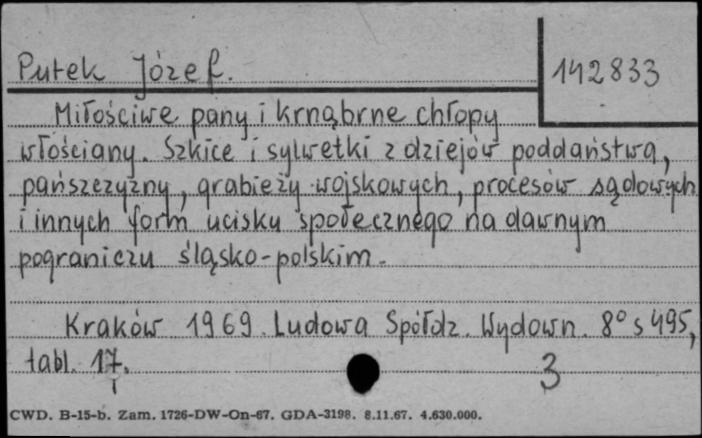 Putek Józef. 142833
Miłościwe pany i krnąbrne chłopy
włościany. Szkice i sylwetki z dziejów poddaństwa,
pańszczyzny, grabieży wojskowych, procesów sądowych
i innych form ucisku społecznego na dawnym
pograniczu śląsko-polskim.
Kraków 1969. Ludowa Spółdz. Wydown. 8° s 495,
tabl. 17.
3
CWD. B-15-b. Zam. 1726-DW-On-67. GDA-3198. 8.11.67. 4.630.000.